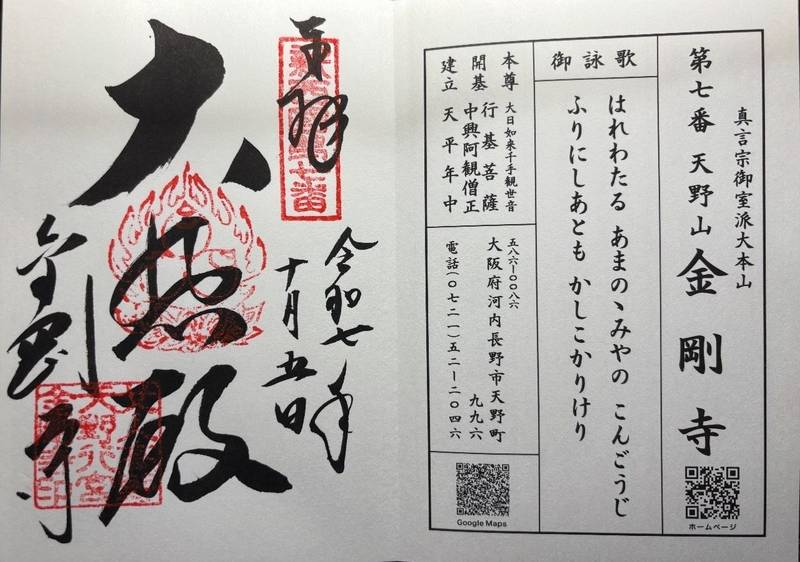 真言宗御室派大本山
第七番 天野山 金剛寺
ホームページ
御詠歌
はれわたる あまのゝみやの こんごうじ
ふりにしあとも かしこかりけり
本尊 大日如来千手観世音
開基 行基菩薩
中興阿観僧正
建立 天平年中
五八六ー〇〇八六
大阪府河内長野市天野町
九九六
電話(〇七二一)五二ー二〇四六
Google Maps
奉拝
令和七年
十月五日
大悲殿
金剛寺